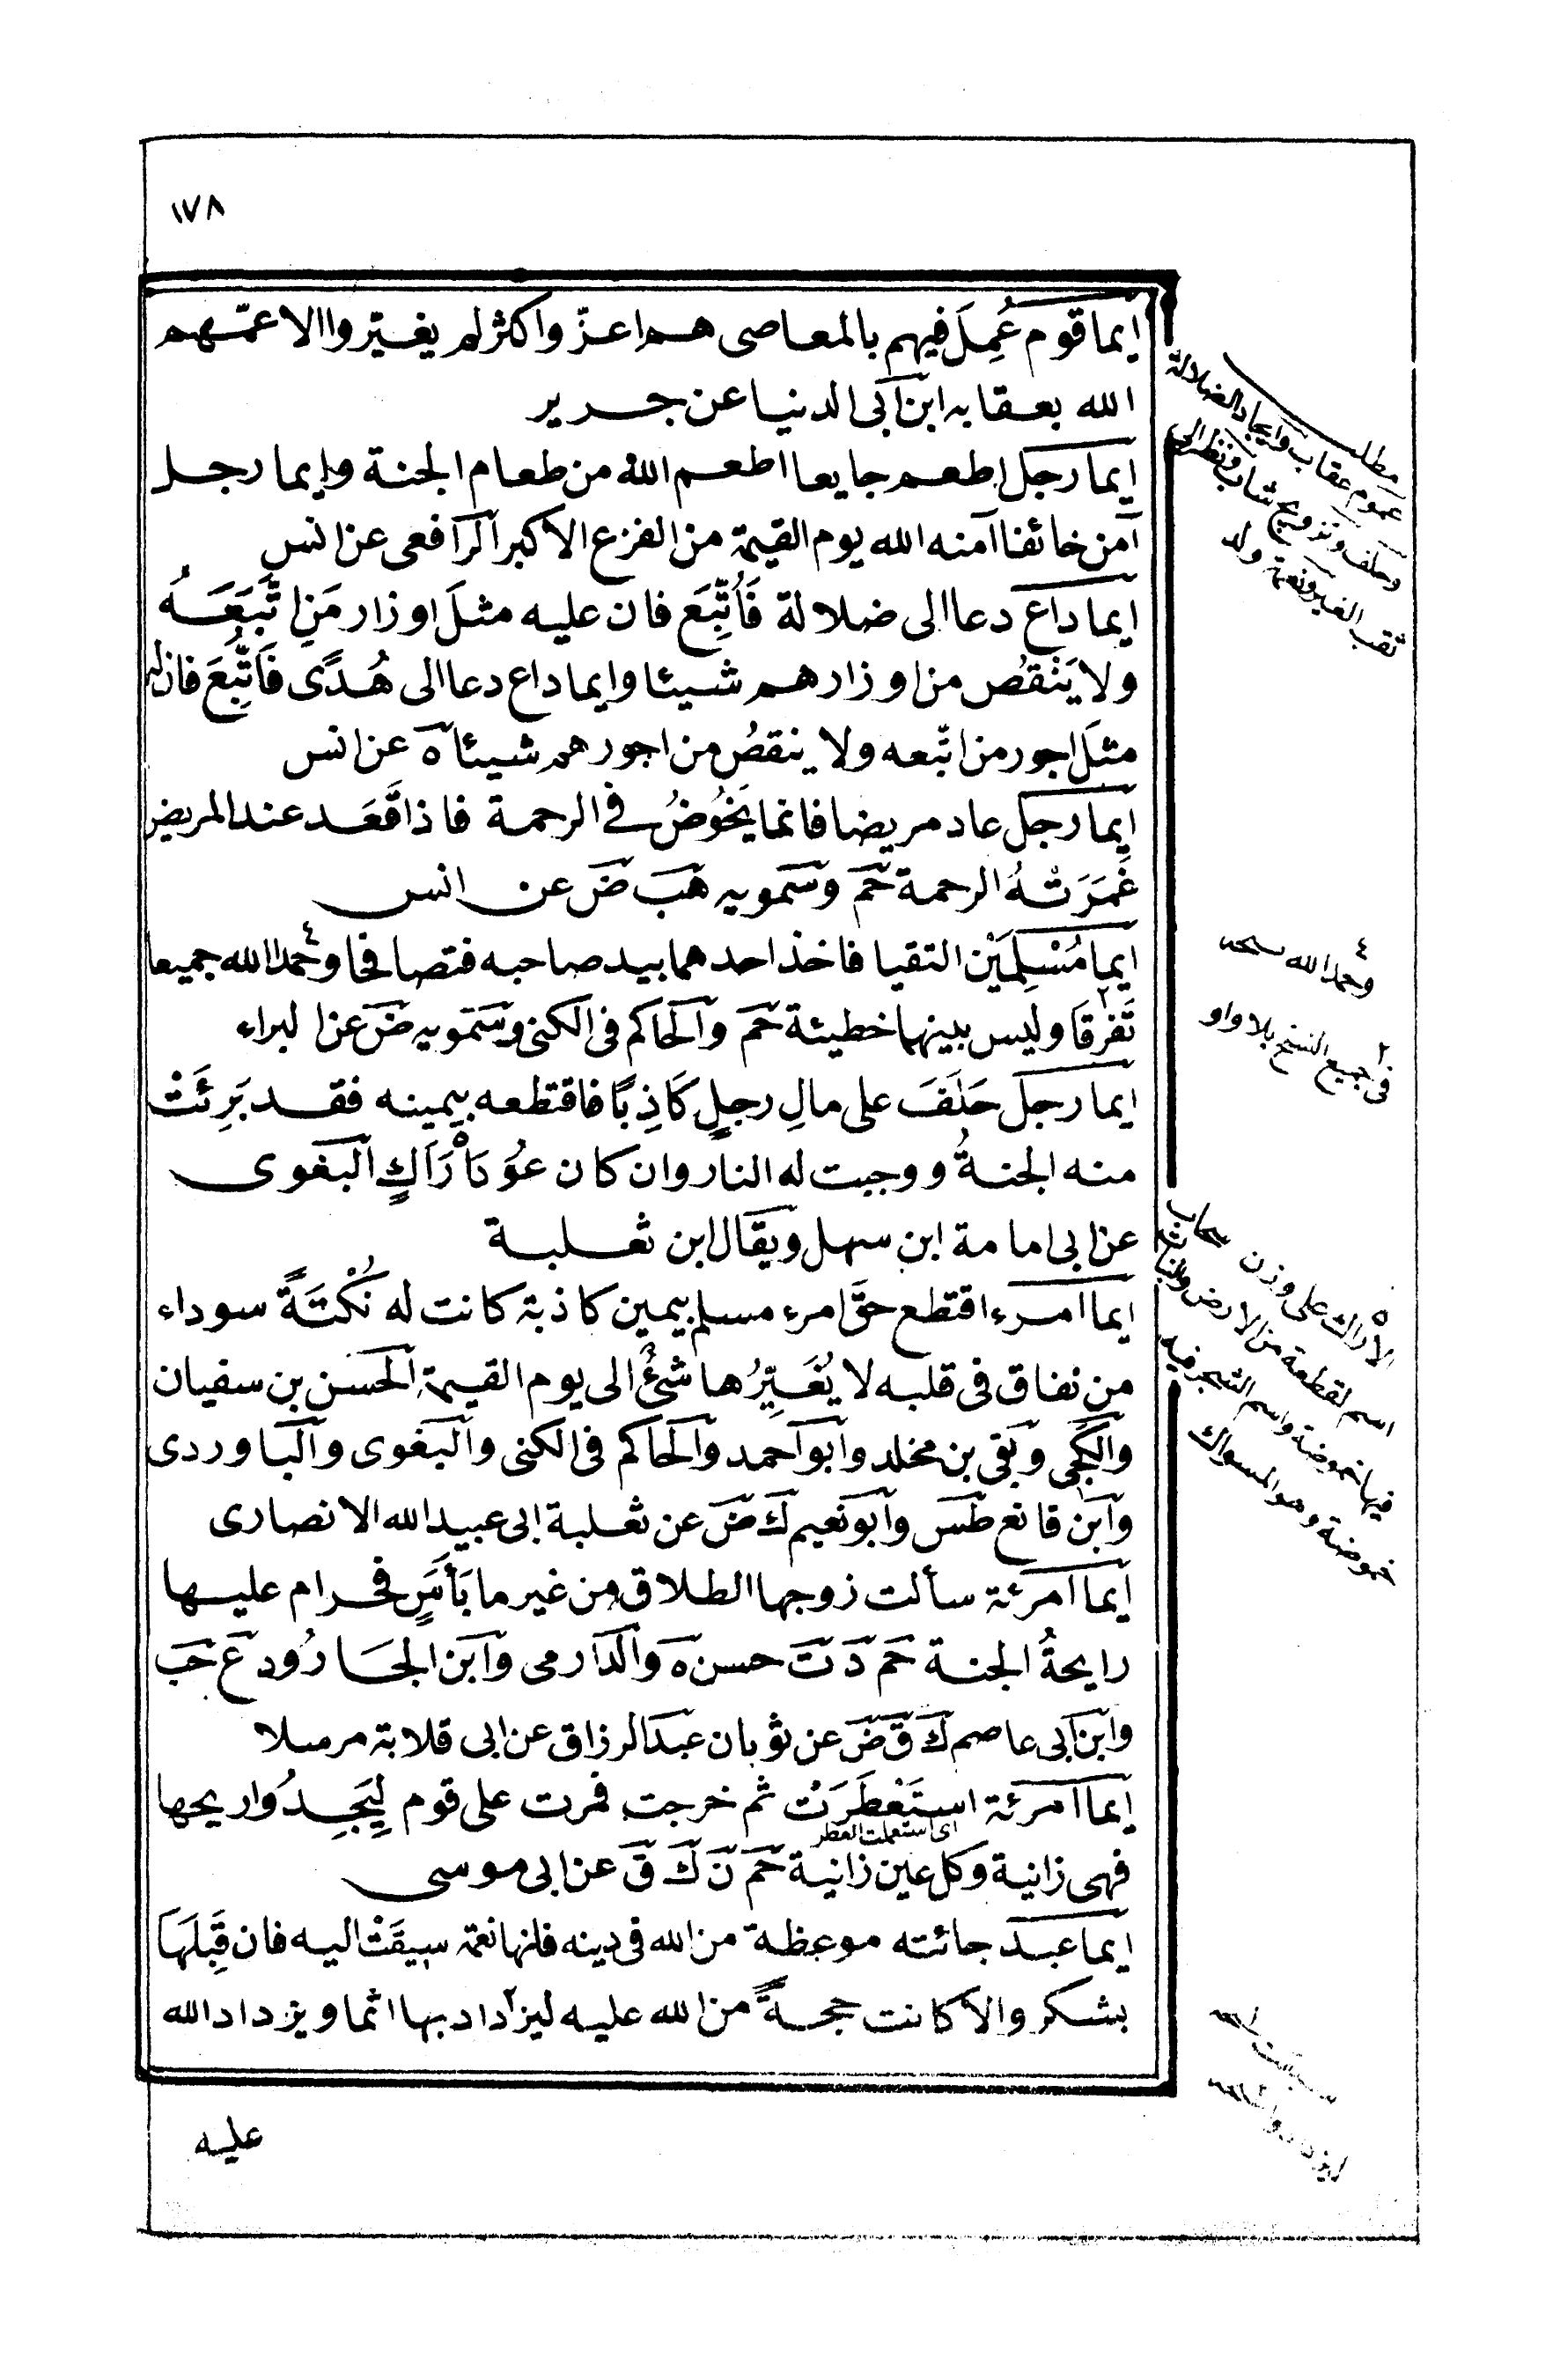 ١٧٨
ايما قوم عُمِلَ فيهم بالمعاصى هم اعزّ واكثر لم يغيّروا الا عمّهم
الله بعقابه ابن ابى الدنيا عن جرير
ايما رجل اطعم جايعا اطعم الله من طعام الجنة وايما رجل
آمن خائفا آمنه الله يوم القيمة من الفزع الاكبر الرافعى عن انس
ايما داع دعا الى ضلالة فَاُتّبِعَ فان عليه مثلَ اوزار مَنِ اتَّبَعَهُ
ولا يَنْقُصُ من اوزارهم شيئا وايما داع دعا الى هُدًى فَاُتُّبِعَ فان له
مثلَ اجور من اتّبعه ولا ينقصُ من اجورهم شيئا ه عن انس
ايما رجل عاد مريضا فانما يَخُوضُ فى الرحمة فاذا قَعَد عند المريض
غَمَرَتْهُ الرحمة حم وسمويه هب ض عن انس
ايما مُسْلِمَيْنِ التقيا فاخذ احدهما بيد صاحبه فتصافحا وحمدا٤ الله جميعا
تَفرقَا٢ وليس بينهما خطيئة حم والحاكم فى الكنى وسمويه ض عن البراء
ايما رجل حَلَفَ على مالِ رجلٍ كَاذِبًا فاقتطعه بيمينه فقد بَرِئَتْ
منه الجنةُ ووجبت له النار وان كان عُوَدَ اَرَاكٍ٥ البغوى
عن ابى امامة ابن سهل ويقال ابن ثعلبة
ايما امرء اقتطع حقَّ امرء مسلم بيمين كاذبة كانت له نُكْتَةً سوداء
من نفاق فى قلبه لا يُغَيِّرُها شئٌ الى يوم القيمة الحسن بن سفيان
والكجى وبقى بن مخلد وابو احمد والحاكم فى الكنى والبغوى والباوردى
وابن قانع طس وابو نعيم ك ض عن ثعلبة ابى عبيد الله الانصارى
ايما امرئة سألت زوجها الطلاق من غير ما بَأسٍ فحرام عليها
رايحةُ الجنة حم د ت حسن ه والدارمى وابن الجارُود ع حب
وابن ابى عاصم ك ق ض عن ثوبان عبد الرزاق عن ابى قلابة مرسلا
ايما امرئة استَعْطَرَتْ ثم خرجت فمرت على قوم لِيَجِدُوا ريحها
اى استعملت العطر
فهى زانية وكل عين زانية حم ن ك ق عن ابى موسى
ايما عبد جائته موعظة من الله فى دينه فانها نعمة سيقَتْ اليه فان قَبِلَهَا
بشكر والا كانت حجةً من الله عليه ليزداد بها اثما ويزداد الله
عليه
مطلب
عموم عقاب وايجاد الضلالة
وحلف وتزويج شاب ونظر الى
ثقب الغير ونعمة ولد
٤
وحمد الله نسخه
٢
فى جميع النسخ بلا واو
٥
الاراك على وزن سحاب
اسم لقطعة من الارض والنبات
فيها خموضة واسم الشجر فيه
خموضة وهو المسواك